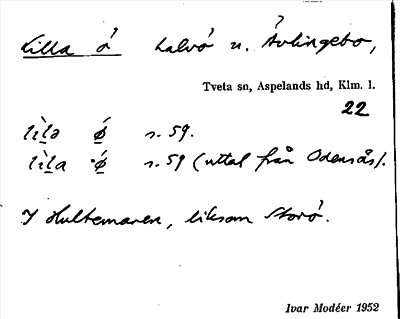 Lilla ö halvö u. Åvlingebo,
Tveta sn, Aspelands hd, Klm. l.
22
lìlə ǿ s. 59.
lìla ǿ s. 59 (uttal från Odensås).
I Hultemaren, liksom Storö.
Ivar Modéer 1952